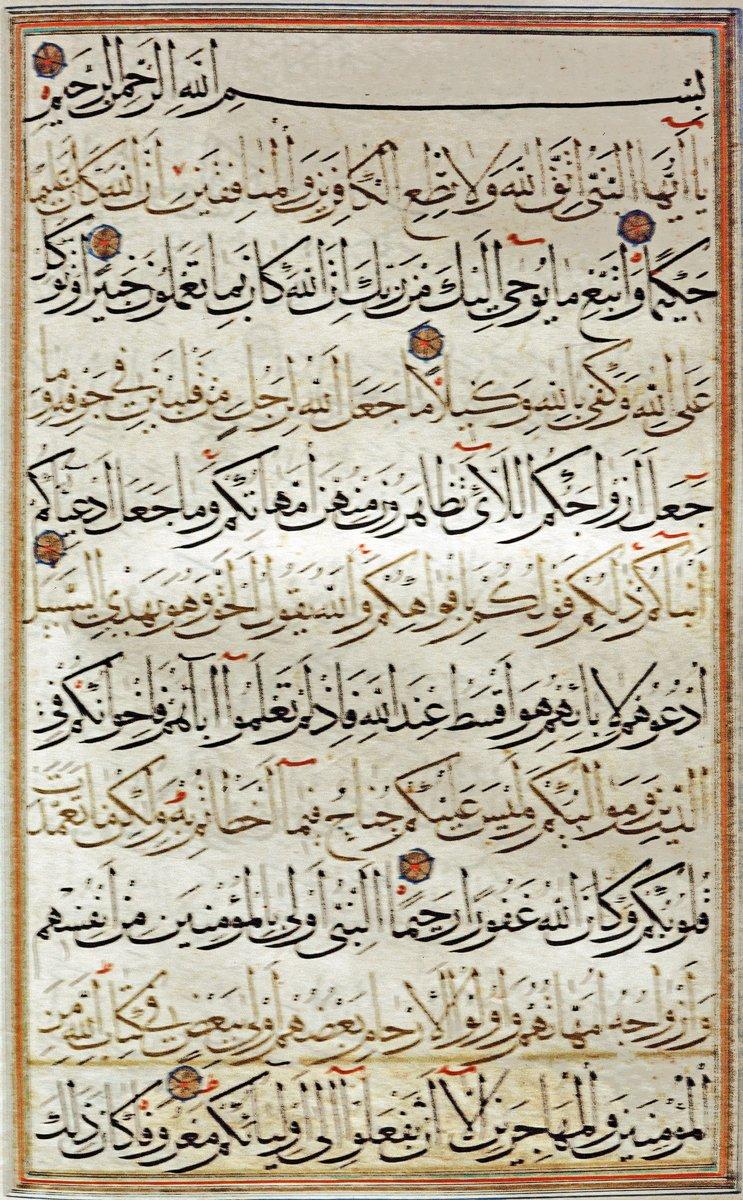 بسم الله الرحمن الرحيم
يا أيها النبي اتق الله ولا تطع الكافرين والمنافقين إن الله كان عليما
حكيما واتبع ما يوحى إليك من ربك إن الله كان بما تعملون خبيرا وتوكل
على الله وكفى بالله وكيلا ما جعل الله لرجل من قلبين في جوفه وما
جعل أزواجكم اللائي تظاهرون منهن أمهاتكم وما جعل أدعياءكم
أبناءكم ذلكم قولكم بأفواهكم والله يقول الحق وهو يهدي السبيل
ادعوهم لآبائهم هو أقسط عند الله فإن لم تعلموا آباءهم فإخوانكم في
الدين ومواليكم وليس عليكم جناح فيما أخطأتم به ولكن ما تعمدت
قلوبكم وكان الله غفورا رحيما النبي أولى بالمؤمنين من أنفسهم
وأزواجه أمهاتهم وأولو الأرحام بعضهم أولى ببعض في كتاب الله من
المؤمنين والمهاجرين إلا أن تفعلوا إلى أوليائكم معروفا كان ذلك